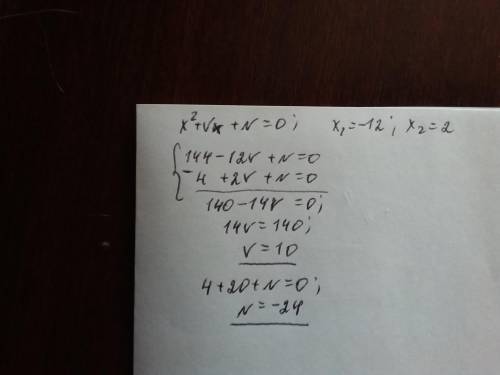 x²+vx+N=0; x₁=-12; x₂=2
144-12v+N=0
- 4 +2v+N=0
140-14v=0;
14v=140;
v=10
4+20+N=0;
N=-24